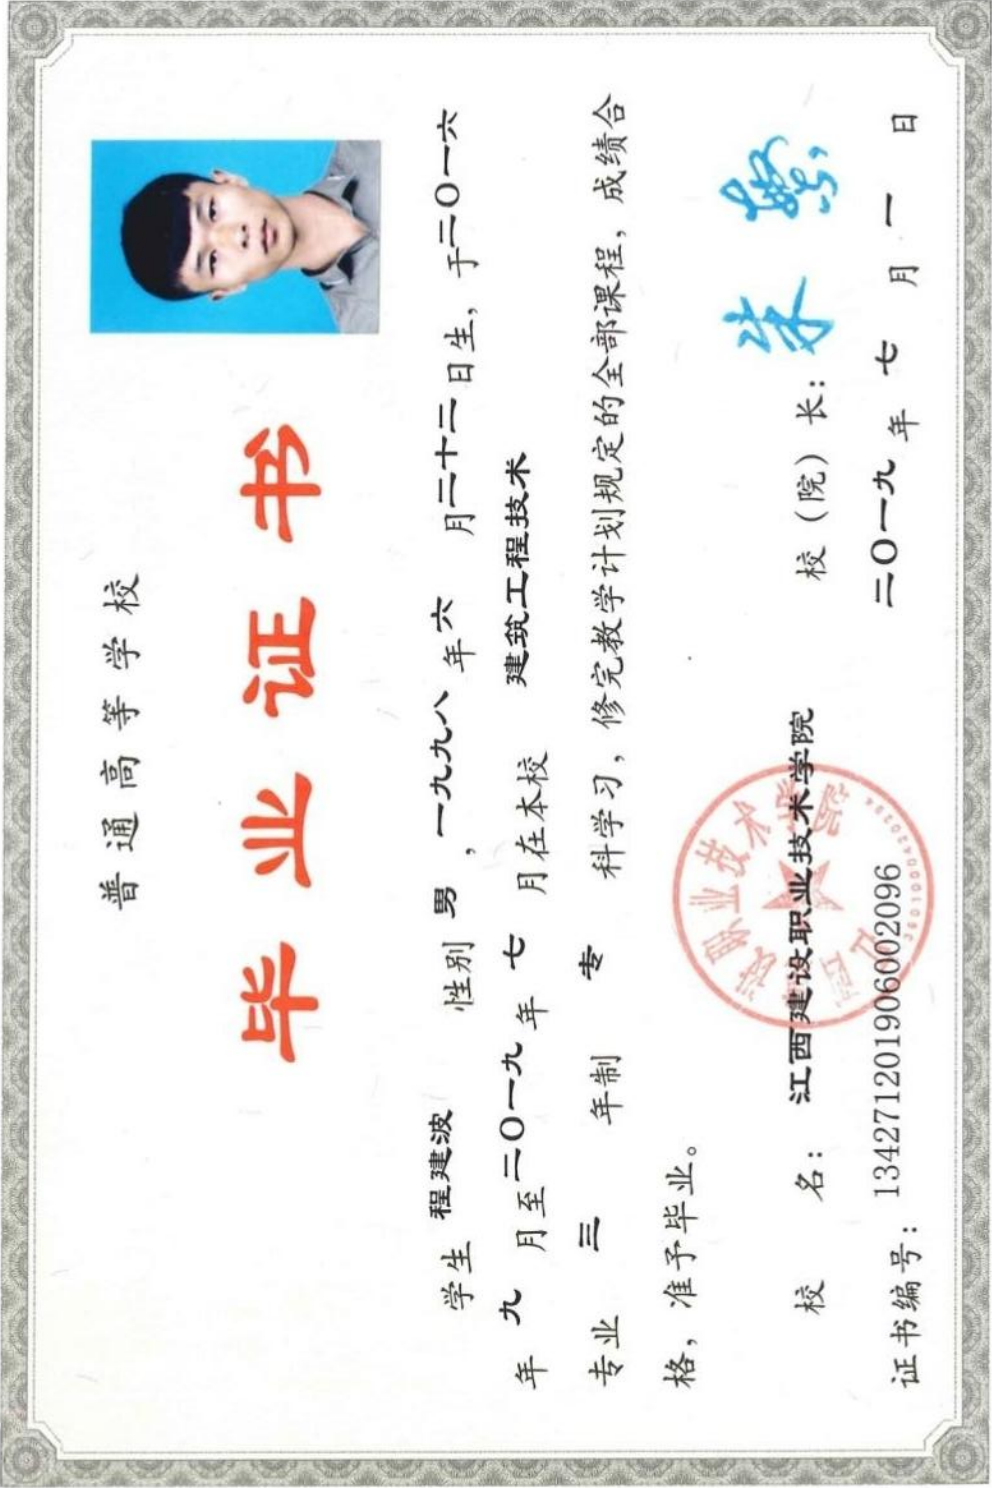 普通高等学校
毕业证书
学生 程建波 性别 男 ,一九九八 年 六 月二十二日生，于二〇一六
年 九 月至二〇一九年 七 月在本校 建筑工程技术
专业 三 年制 专 科学习，修完教学计划规定的全部课程，成绩合
格，准予毕业。
校 名： 江西建设职业技术学院 校（院）长：
证书编号：134271201906002096 二〇一九 年 七 月 一 日